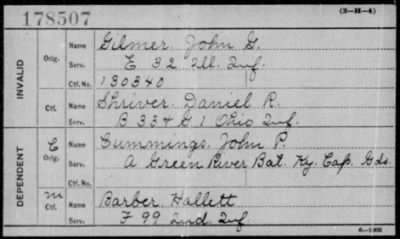 178507
(3-H-4)
INVALID
Orig.
Name Gilmer. John G.
Serv. E 32 Ill. Inf.
Ctf. No. 130340
Ctf.
Name Shriver. Daniel R.
Serv. B 33 & G 1 Ohio Inf.
DEPENDENT
C
Orig.
Name Cummings. John P.
Serv. A Green River Bat. Ky. Cap. Gds.
Ctf. No.
m
Ctf.
Name Barber. Hallett
Serv. F 99 Ind. Inf.